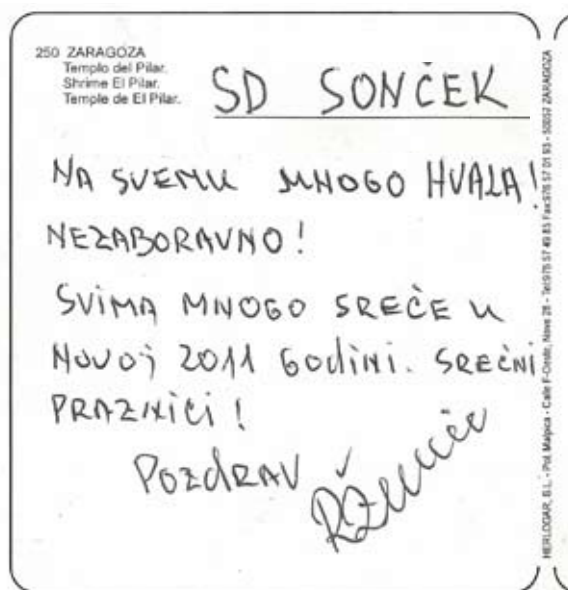 250 ZARAGOZA
Templo del Pilar.
Shrime El Pilar.
Temple de El Pilar.
SD SONČEK
NA SVEMU MNOGO HVALA!
NEZABORAVNO!
SVIMA MNOGO SREĆE U
NOVOJ 2011 GODINI. SREĆNI
PRAZNICI!
POZDRAV
HERLOGAR, S.L. - Pol. Malpica - Calle F-Oeste, Nave 28 - Tel. 976 57 49 83 Fax 976 57 01 93 - 50057 ZARAGOZA